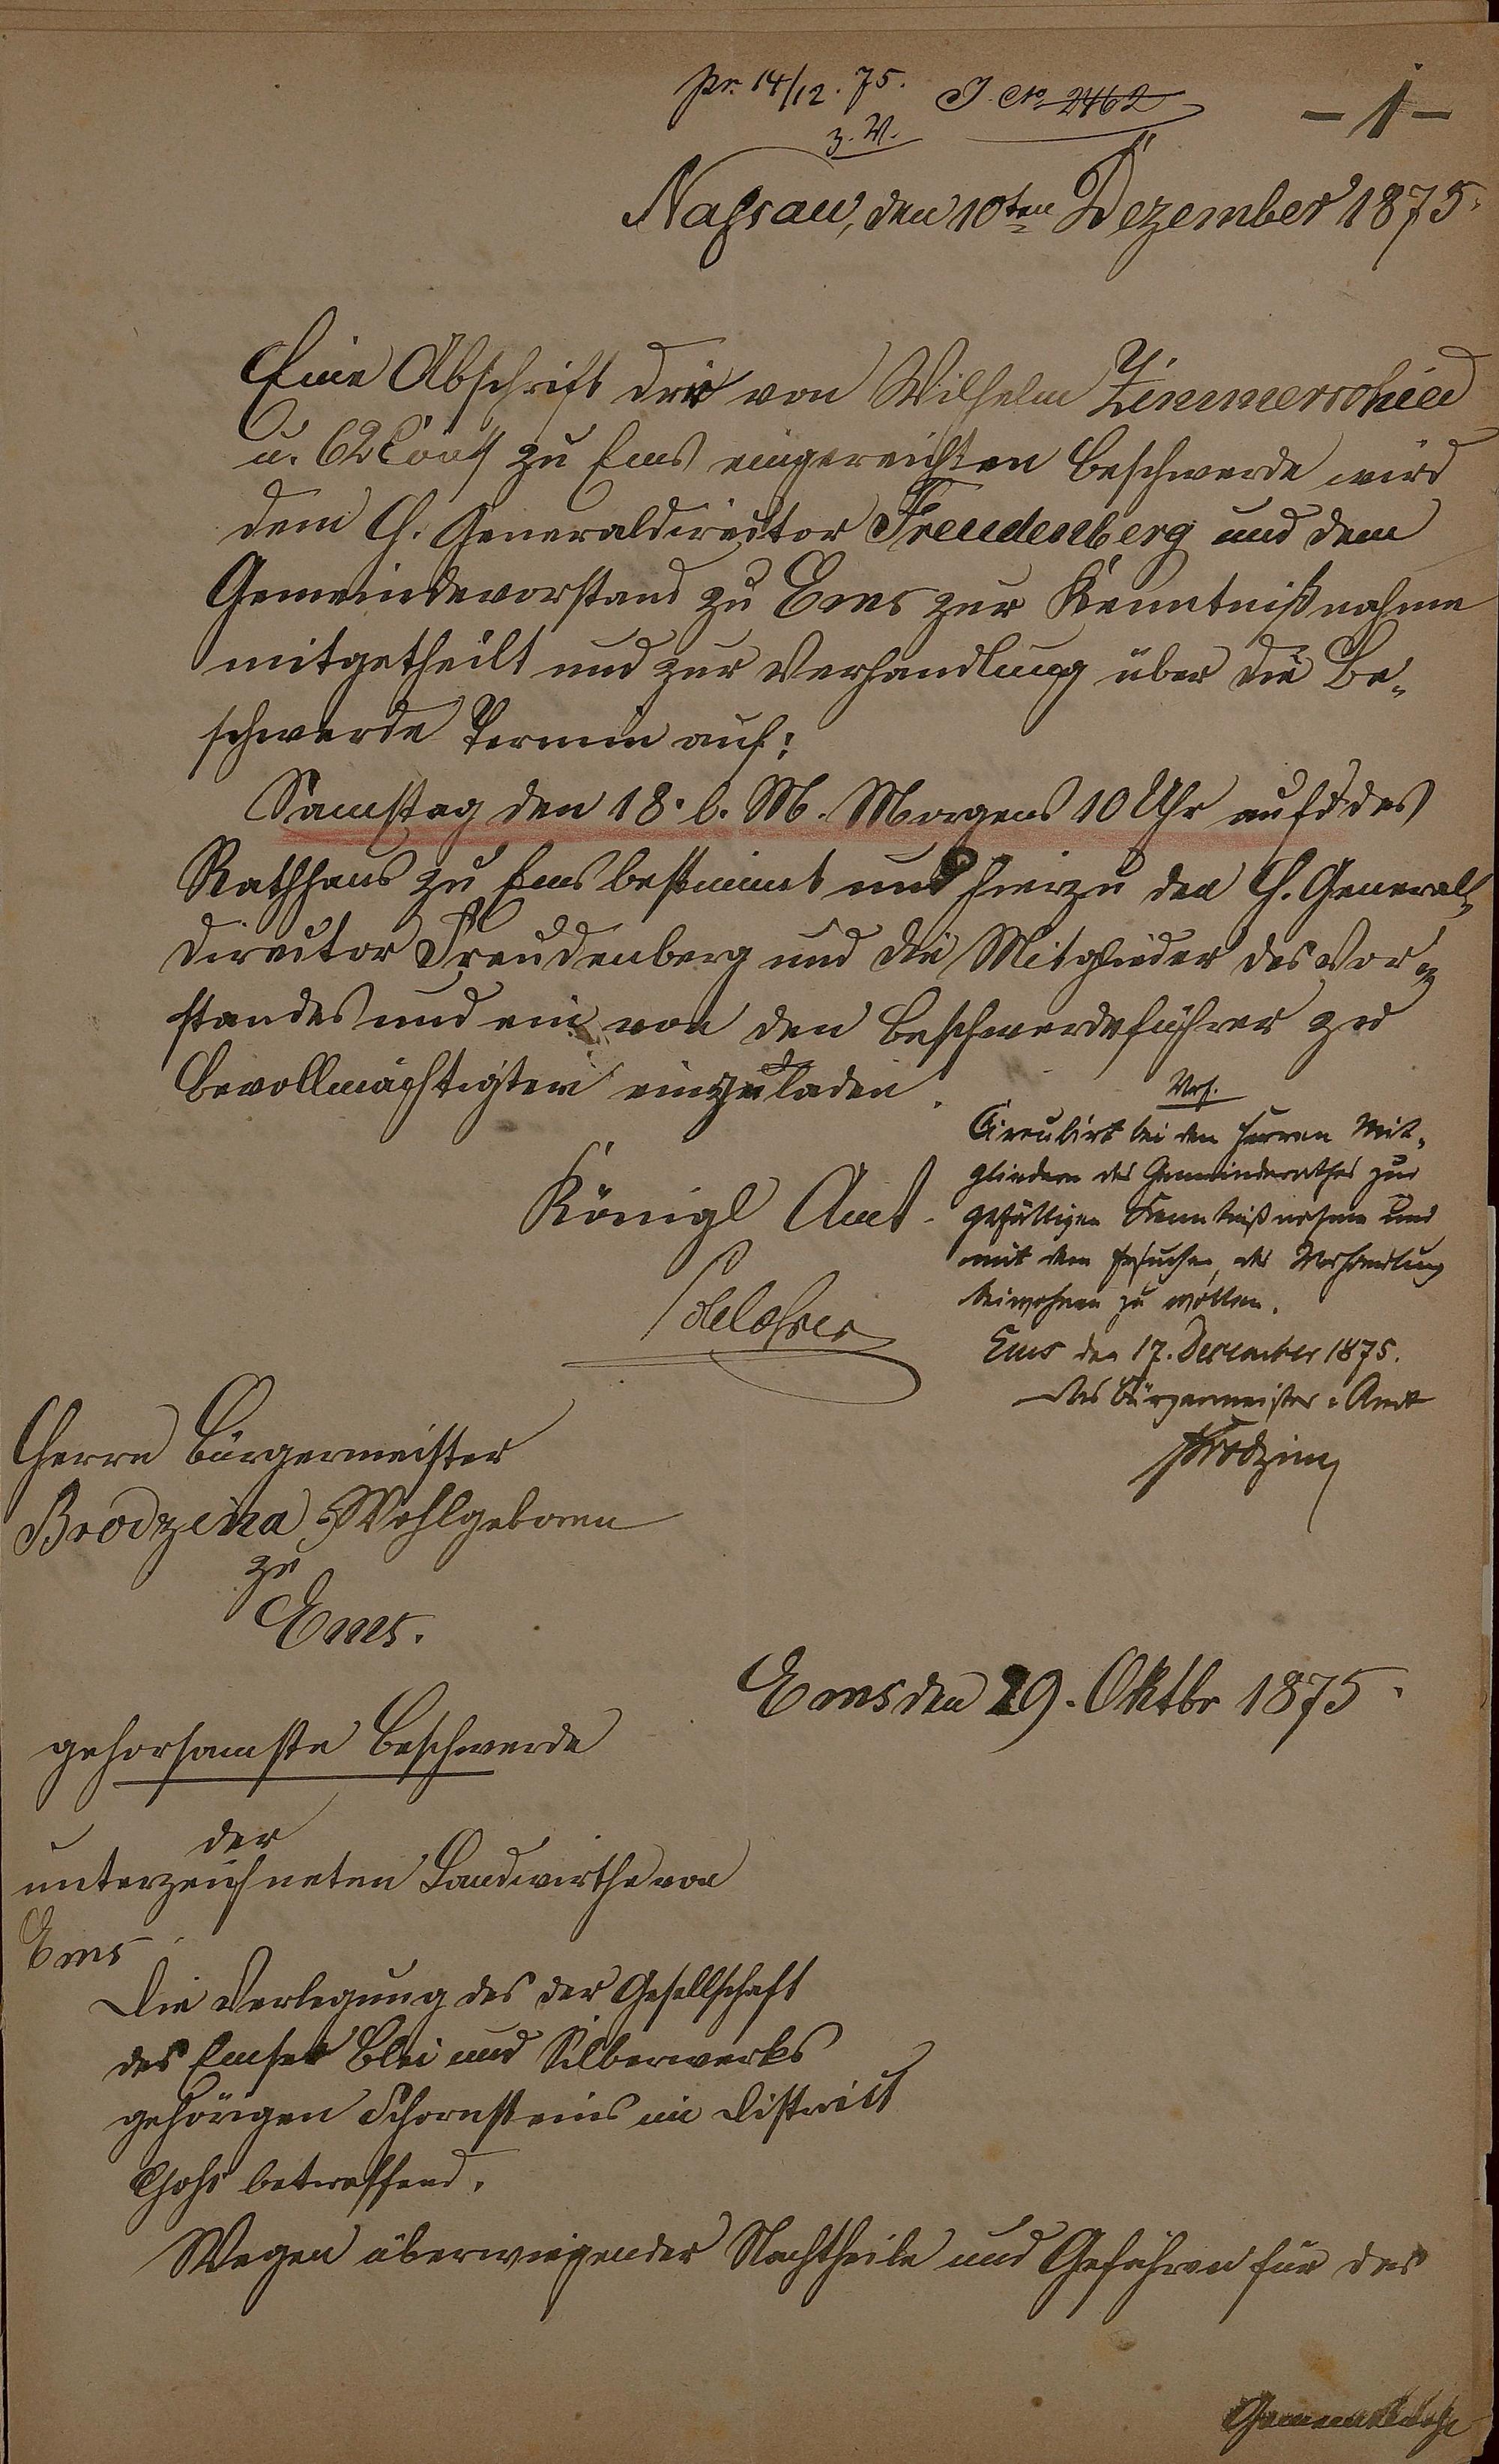 pr. 14/12. 75. J. No 2462
z. V.
- 1 -
Naßau, den 10ten Dezember 1875.
Eine Abschrift der von Wilhelm Zimmerschied
u. 62 Cons zu Ems eingereichten Beschwerde wird
dem H. Generaldirector Freudenberg und dem
Gemeindevorstand zu Ems zur Kenntnißnahme
mitgetheilt und zur Verhandlung über die Be-
schwerde Termin auf:
Samstag den 18. l. M. Morgens 10 Uhr auf des
Rathhaus zu Ems bestimmt und hierzu den H. General-
director Freudenberg und die Mitglieder des Vor-
standes und ein von den Beschwerdeführer zu
bevollmächtigten einzuladen.
Königl Amt.
Vrf.
Circulirt bei den Herren Mit-
gliedern des Gemeinderathes zur
gefälligen Kenntnißnahme und
mit dem Ersuchen, der Verhandlung
beiwohnen zu wollen.
Ems den 17. December 1875.
Das Bürgermeister-Amt
Brodzina
Herrn Bürgermeister
Brodzina Wohlgeboren
zu
Ems.
Ems den 29. Oktbr 1875.
gehorsamste Beschwerde
der
unterzeichneten Landwirthe von
Ems
Die Verlegung des der Gesellschaft
des Emser Blei und Silberwerks
gehörigen Schornsteins im District
betreffend.
Wegen überwiegender Nachtheile und Gefahren für das